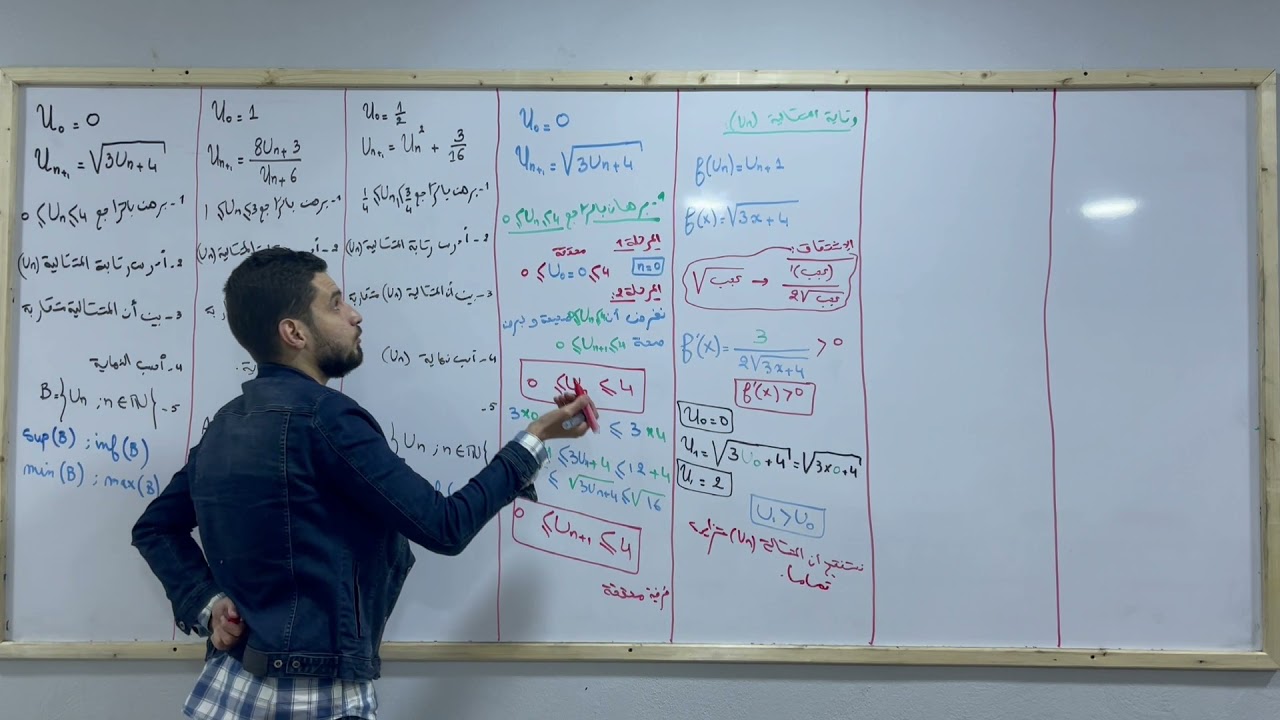 U₀ = 0
Uₙ₊₁ = √(3Uₙ + 4)
1- برهن بالتراجع 0 ⩽ Uₙ ⩽ 4
2- أدرس رتابة المتتالية (Uₙ)
3- بين أن المتتالية متقاربة
4- أحسب النهاية
5- B = {Uₙ ; n ∈ ℕ}
sup(B) ; inf(B)
min(B) ; max(B)
U₀ = 1
Uₙ₊₁ = (8Uₙ + 3)/(Uₙ + 6)
1- برهن بالتراجع 1 ⩽ Uₙ ⩽ 3
2- المتتالية (Uₙ)
U₀ = 1/2
Uₙ₊₁ = Uₙ² + 3/16
1- برهن بالتراجع 1/4 ⩽ Uₙ ⩽ 3/4
2- أدرس رتابة المتتالية (Uₙ)
3- بين أن المتتالية (Uₙ) متقاربة
4- أحسب نهاية (Uₙ)
5-
Uₙ ; n ∈ ℕ}
U₀ = 0
Uₙ₊₁ = √(3Uₙ + 4)
برهان بالتراجع 0 ⩽ Uₙ ⩽ 4
المرحلة 1:
n = 0
محققة
0 ⩽ U₀ = 0 ⩽ 4
المرحلة 2:
نفرض أن صحيحة و نبرهن
صحة 0 ⩽ Uₙ₊₁ ⩽ 4
0 ⩽ U ⩽ 4
3×0 ⩽ 3×4
⩽ 3Uₙ + 4 ⩽ 12 + 4
⩽ √(3Uₙ + 4) ⩽ √16
0 ⩽ Uₙ₊₁ ⩽ 4
محققة
رتابة المتتالية (Uₙ):
f(Uₙ) = Uₙ₊₁
f(x) = √(3x + 4)
الاشتقاق:
√عجيب → (عجيب)'/(2√عجيب)
f'(x) = 3/(2√(3x + 4)) > 0
f'(x) > 0
U₀ = 0
U₁ = √(3U₀ + 4) = √(3×0 + 4)
U₁ = 2
U₁ > U₀
نستنتج أن المتتالية (Uₙ) متزايدة
تماما.